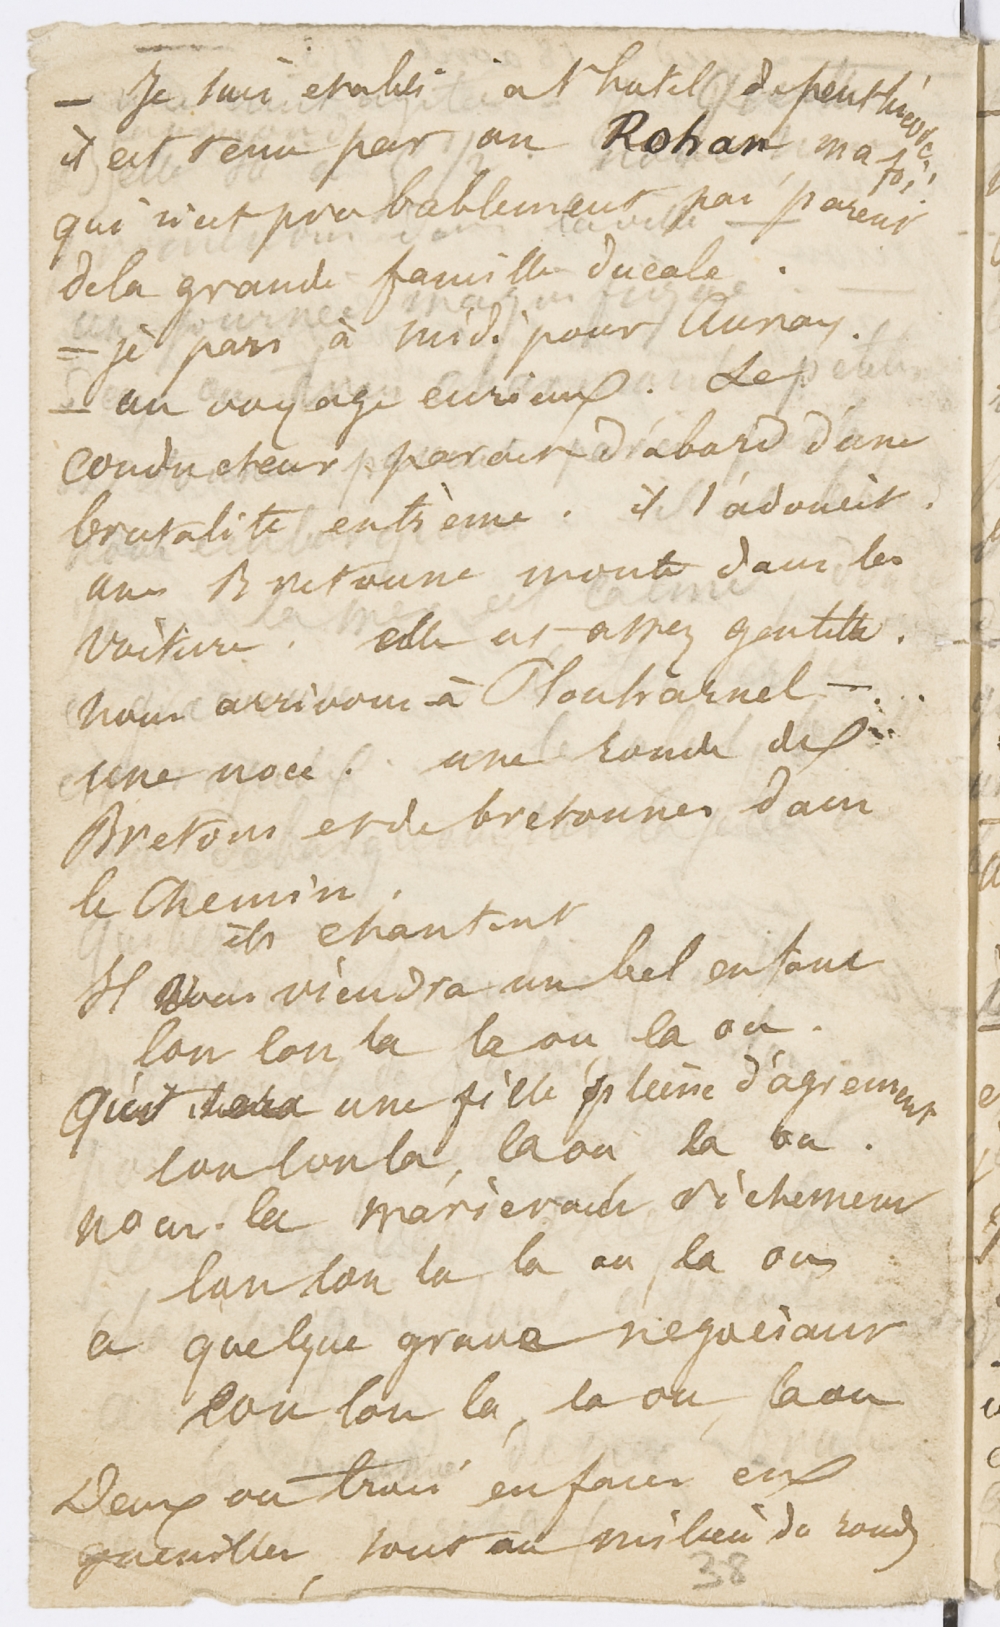 — Je suis etabli à l'hotel de penthièvre
il est tenu par un Rohan, ma foi!
qui n'est probablement pas parent
de la grande famille ducale.
— je pars à midi pour Auray.
— un voyage curieux. Le
conducteur parait d'abord d'une
brutalité extrème. il s'adoucit.
une Bretonne monte dans la
voiture. elle est assez gentille.
nous arrivons à Plouharnel —...
une noce. une ronde de
Bretons et de bretonnes dans
le Chemin.
ils chantent
Il vous viendra un bel enfant
lon lon la la ou la ou.
Qui sera une fille pleine d'agrement
lon lon la, la ou la ou.
nous la marierons richement
lon lon la la ou, la ou
a quelque grave negociant
lon lon la, la ou, la ou
Deux ou trois enfans en
guenilles, sont au milieu du rond
38